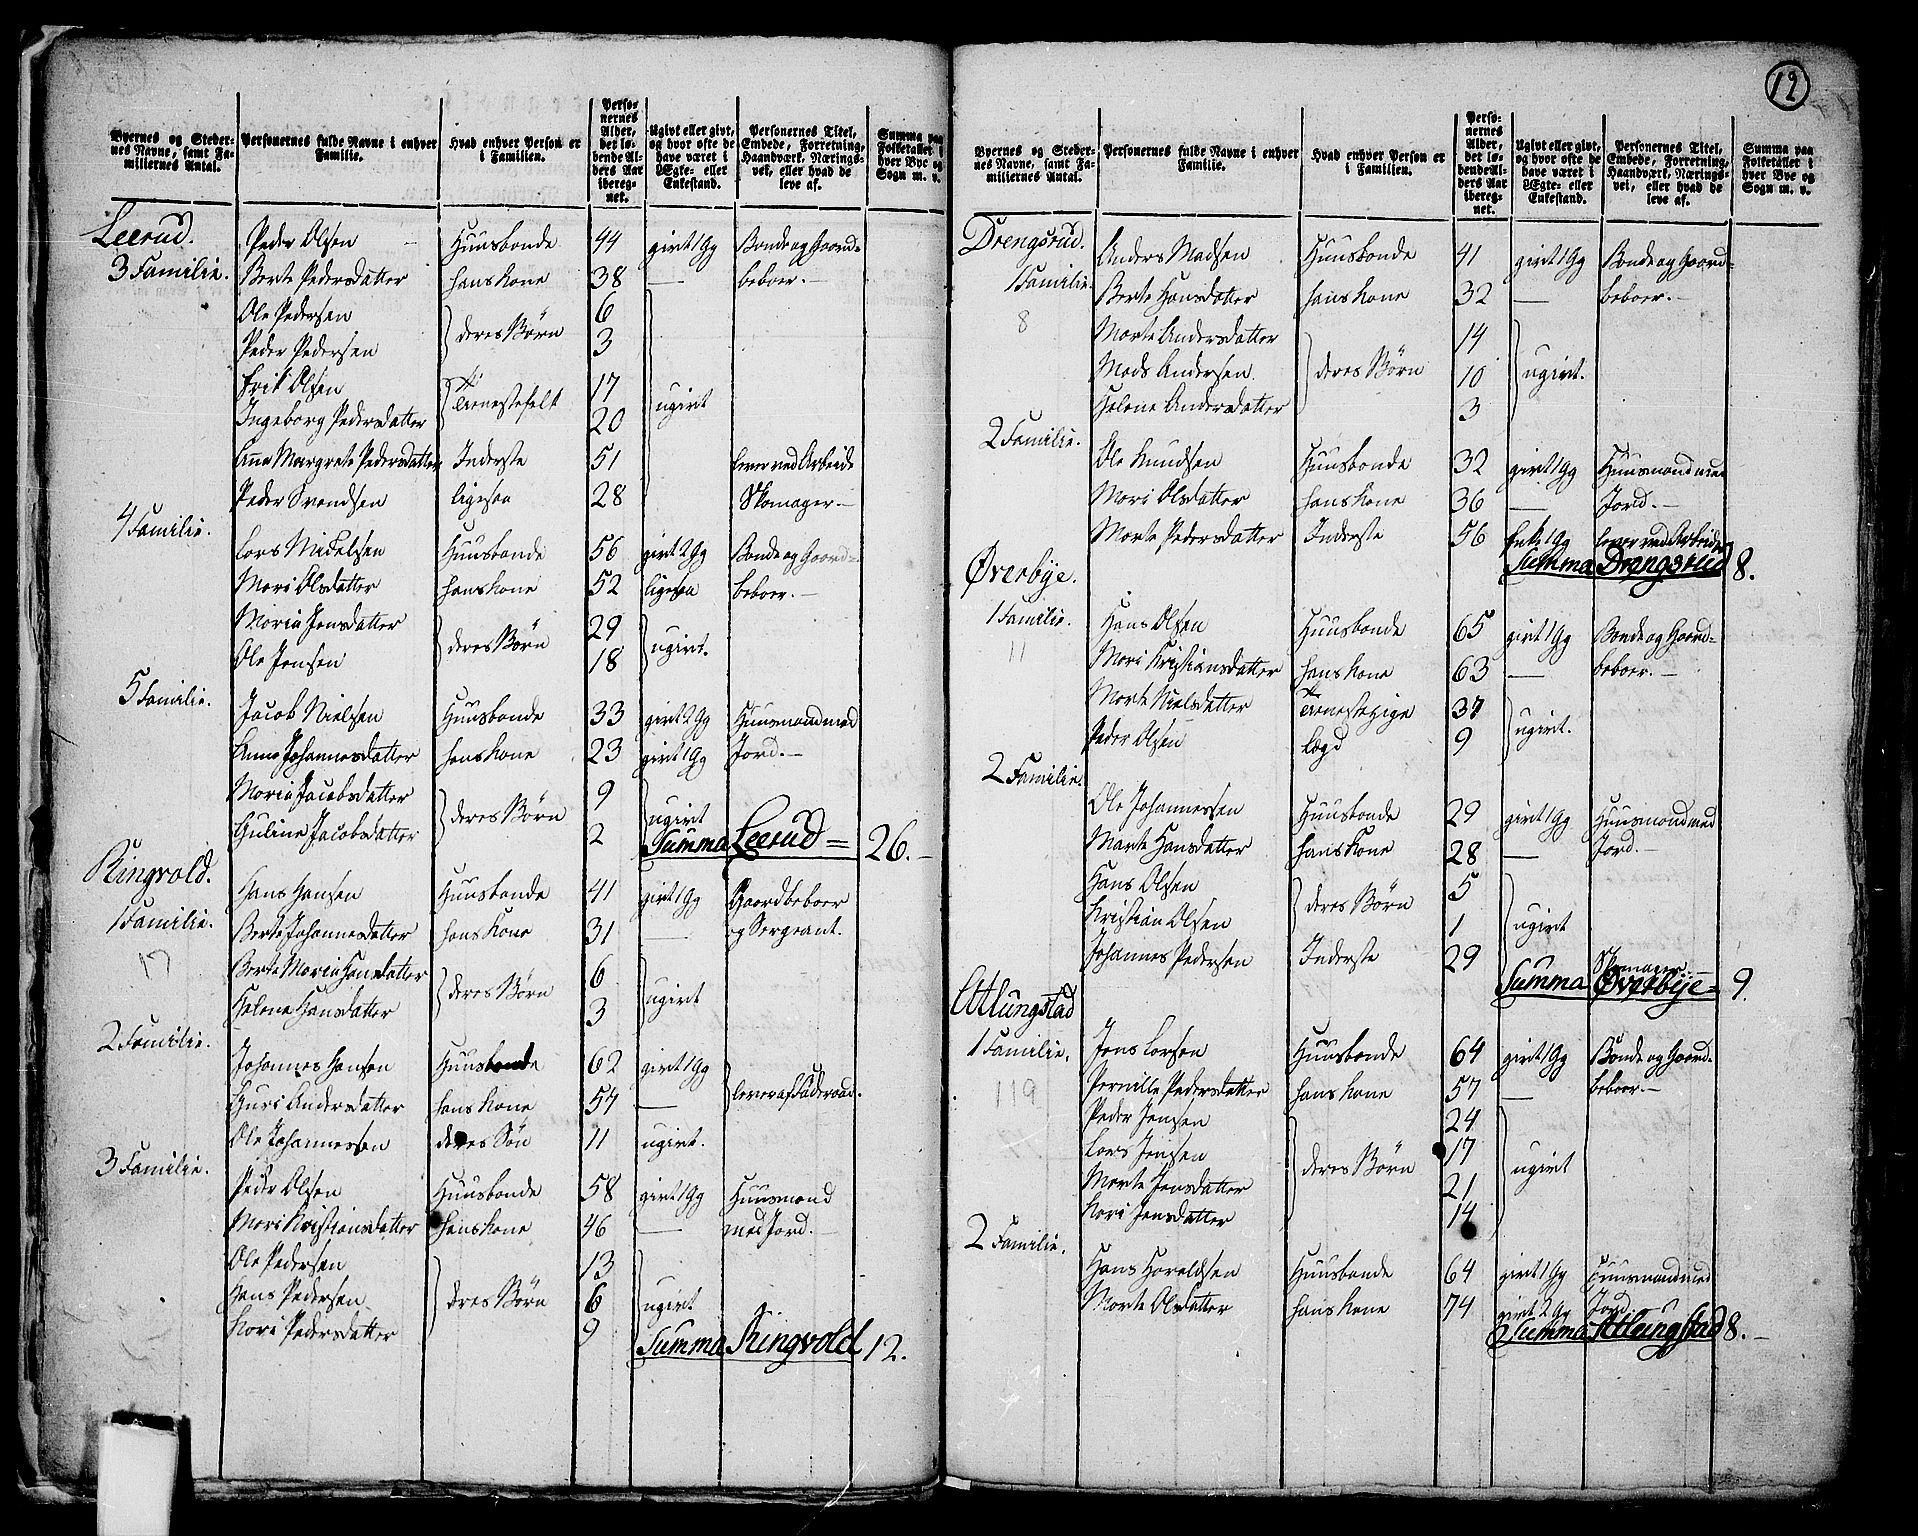 12
Byernes og Steder- Personernes fulde Navne i enhver Hvad enhver Person er Perso- Ugivt eller givt, Personernes Titel, Summa paa
nes Navne, samt Fa- Familie. i Familien. nernes og hvor ofte de Embede, Forretning, Folketallet i
miliernes Antal. Alder, have været i Haandværk, Nærings- hver Bye og
det lø- Ægte- eller vei, eller hvad de Sogn m. v.
bende Al- Enkestand. leve af.
ders Aar
ibereg-
net.
Leerud. Peder Olsen Huusbonde 44 givt 1 Gg Bonde og Gaard-
3 Familie. Berte Pedersdatter hans Kone 38 — beboer.
Ole Pedersen 6
Peder Pedersen deres Børn 3
Erik Olsen 17
Ingeborg Pedersdatter Tienestefolk 20 ugivt
Anne Margrete Pedersdatter Inderste 51 lever ved Arbeide
Peder Svendsen ligesaa 28 Skomager.
4 Familie. Lars Mickelsen Huusbonde 56 givt 2 Gg Bonde og Gaard-
Mari Olsdatter hans Kone 52 ligesaa beboer.
Maria Jensdatter 29
Ole Jensen deres Børn 18 ugivt.
5 Familie. Jacob Nielsen Huusbonde 33 givt 2 Gg Huusmand med
Anne Johannesdatter hans Kone 23 givt 1 Gg Jord.
Maria Jacobsdatter 9
Guline Jacobsdatter deres Børn 2 ugivt
Summa Leerud = 26.
Ringvold. Hans Hansen Huusbonde 41 givt 1 Gg Gaardbeboer
1 Familie. Berte Johannesdatter hans Kone 31 — og Sergeant.
17 Berte Maria Hansdatter 6
Helene Hansdatter deres Børn 3 ugivt
2 Familie. Johannes Hansen Huusbonde 62 givt 1 Gg
Guri Andersdatter hans Kone 57 — lever af Føderaad.
Ole Johannessen deres Søn 11 ugivt.
3 Familie. Peder Olsen Huusbonde 58 givt 1 Gg Huusmand
Mari Kristiansdatter hans Kone 46 — med Jord.
Ole Pedersen 13
Hans Pedersen deres Børn 6 ugivt
Kari Pedersdatter 9
Summa Ringvold 12.
Byernes og Steder- Personernes fulde Navne i enhver Hvad enhver Person er Perso- Ugivt eller givt, Personernes Titel, Summa paa
nes Navne, samt Fa- Familie. i Familien. nernes og hvor ofte de Embede, Forretning, Folketallet i
miliernes Antal. Alder, have været i Haandværk, Nærings- hver Bye og
det lø- Ægte- eller vei, eller hvad de Sogn m. v.
bende Al- Enkestand. leve af.
ders Aar
ibereg-
net.
Drengsrud. Anders Madsen Huusbonde 41 givt 1 Gg Bonde og Gaard-
1 Familie. Berte Hansdatter hans Kone 32 — beboer.
8 Marte Andersdatter 14
Mads Andersen deres Børn 10 ugivt.
Helene Andersdatter 3
2 Familie. Ole Knudsen Huusbonde 32 givt 1 Gg Huusmand med
Mari Olsdatter hans Kone 36 — Jord.
Marte Pedersdatter Inderste 56 Enke 1 Gg lever ved Arbeide
Summa Drengsrud 8.
Øverbye.
1 Familie. Hans Olsen Huusbonde 65 givt 1 Gg Bonde og Gaard-
11 Mari Kristiansdatter hans Kone 63 — beboer.
Marte Nielsdatter Tienestepige 37
Peder Olsen Lægd 9 ugivt.
2 Familie. Ole Johannessen Huusbonde 29 givt 1 Gg Huusmand med
Marte Hansdatter hans Kone 28 — Jord.
Hans Olsen 5
Kristian Olsen deres Børn 1 ugivt
Johannes Pedersen Inderste 29 Skomager.
Summa Øverbye = 9.
Atlungstad
1 Familie. Jens Larsen Huusbonde 64 givt 1 Gg Bonde og Gaard-
119 Pernille Pedersdatter hans Kone 57 — beboer.
Peder Jensen 24
Lars Jensen 17
Marte Jensdatter deres Børn 21 ugivt
Kari Jensdatter 14
2 Familie. Hans Haraldsen Huusbonde 64 givt 1 Gg Huusmand med
Marte Olsdatter hans Kone 74 givt 2 Gg Jord.
Summa Atlungstad 8.